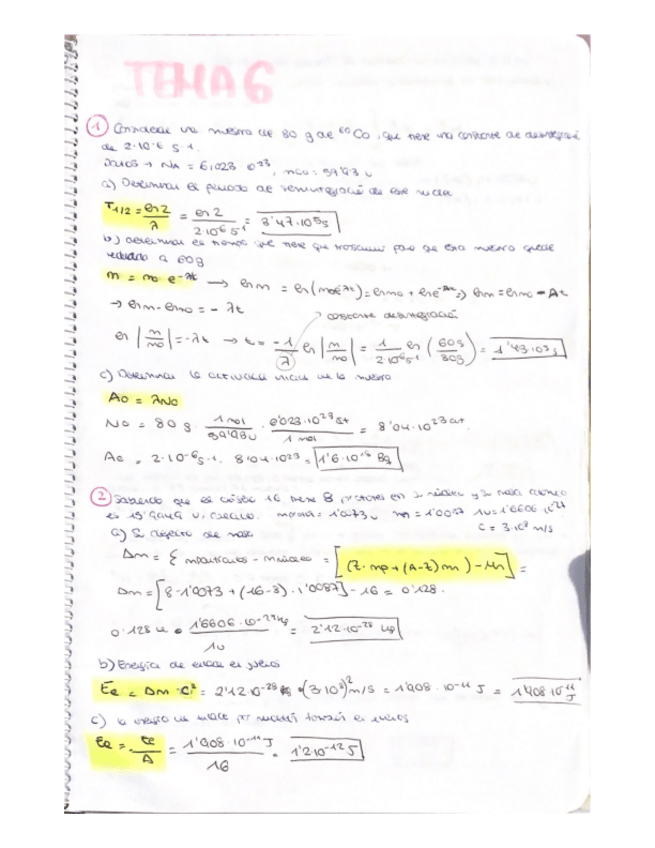 TEMA 6
1 Considerar una muestra de 80 g de ⁶⁰Co, que tiene una constante de desintegración
de 2·10⁻⁶ s⁻¹.
Datos → NA = 6,023 10²³, mCo: 59'93 u
a) Determinar el periodo de semidesintegración de este nuclei
T1/2 = ln 2/λ = ln 2/2·10⁻⁶ s⁻¹ = 3'47·10⁵ s
b) Determinar el tiempo que tiene que transcurrir para que esta muestra quede
reducida a 60g
m = m₀ e^-λt → ln m = ln(m₀e^-λt) = ln m₀ + ln e^-λt => ln m = ln m₀ - λt
→ ln m - ln m₀ = - λt
constante desintegració
ln |m/m₀| = -λt → t = -1/λ ln |m/m₀| = 1/2·10⁻⁶ s⁻¹ ln (60g/80g) =
c) Determinar la actividad inicial de la muestra
A₀ = λN₀
N₀ = 80 g · 1 mol/59'93u · 6'023·10²³ at/1 mol = 8'04·10²³ at.
A₀ = 2·10⁻⁶ s⁻¹ · 8'04·10²³ = 1'6·10¹⁸ Bq
2 Sabiendo que el oxígeno 16 tiene 8 protones en su núcleo y su masa atómica
es u. Calcula: 1'0073 u 1'0087 1u = 1'6606·10⁻²⁷
c = 3·10⁸ m/s
a) Su defecto de masa
Δm = Σ mpartículas - mnúcleo = [(Z·mp + (A-Z) mn) - Mn] =
Δm = [8·1'0073 + (16-8)·1'0087] - 16 = 0'128.
0'128 u · 1'6606·10⁻²⁷ kg/1u = 2'12·10⁻²⁸ kg
b) Energía de enlace el
Ee = Δm·c² = 2'12·10⁻²⁸ · (3·10⁸)² m/s = 1'908·10⁻¹¹ J = 1'908·10⁻¹¹ J
c) la energía de enlace por
Ee = Ee/A = 1'908·10⁻¹¹ J/16 = 1'2·10⁻¹² J